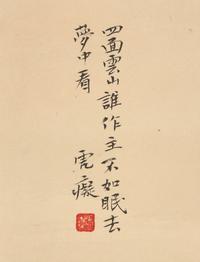 四面雲山誰作主不如眠去
夢中看
虎癡